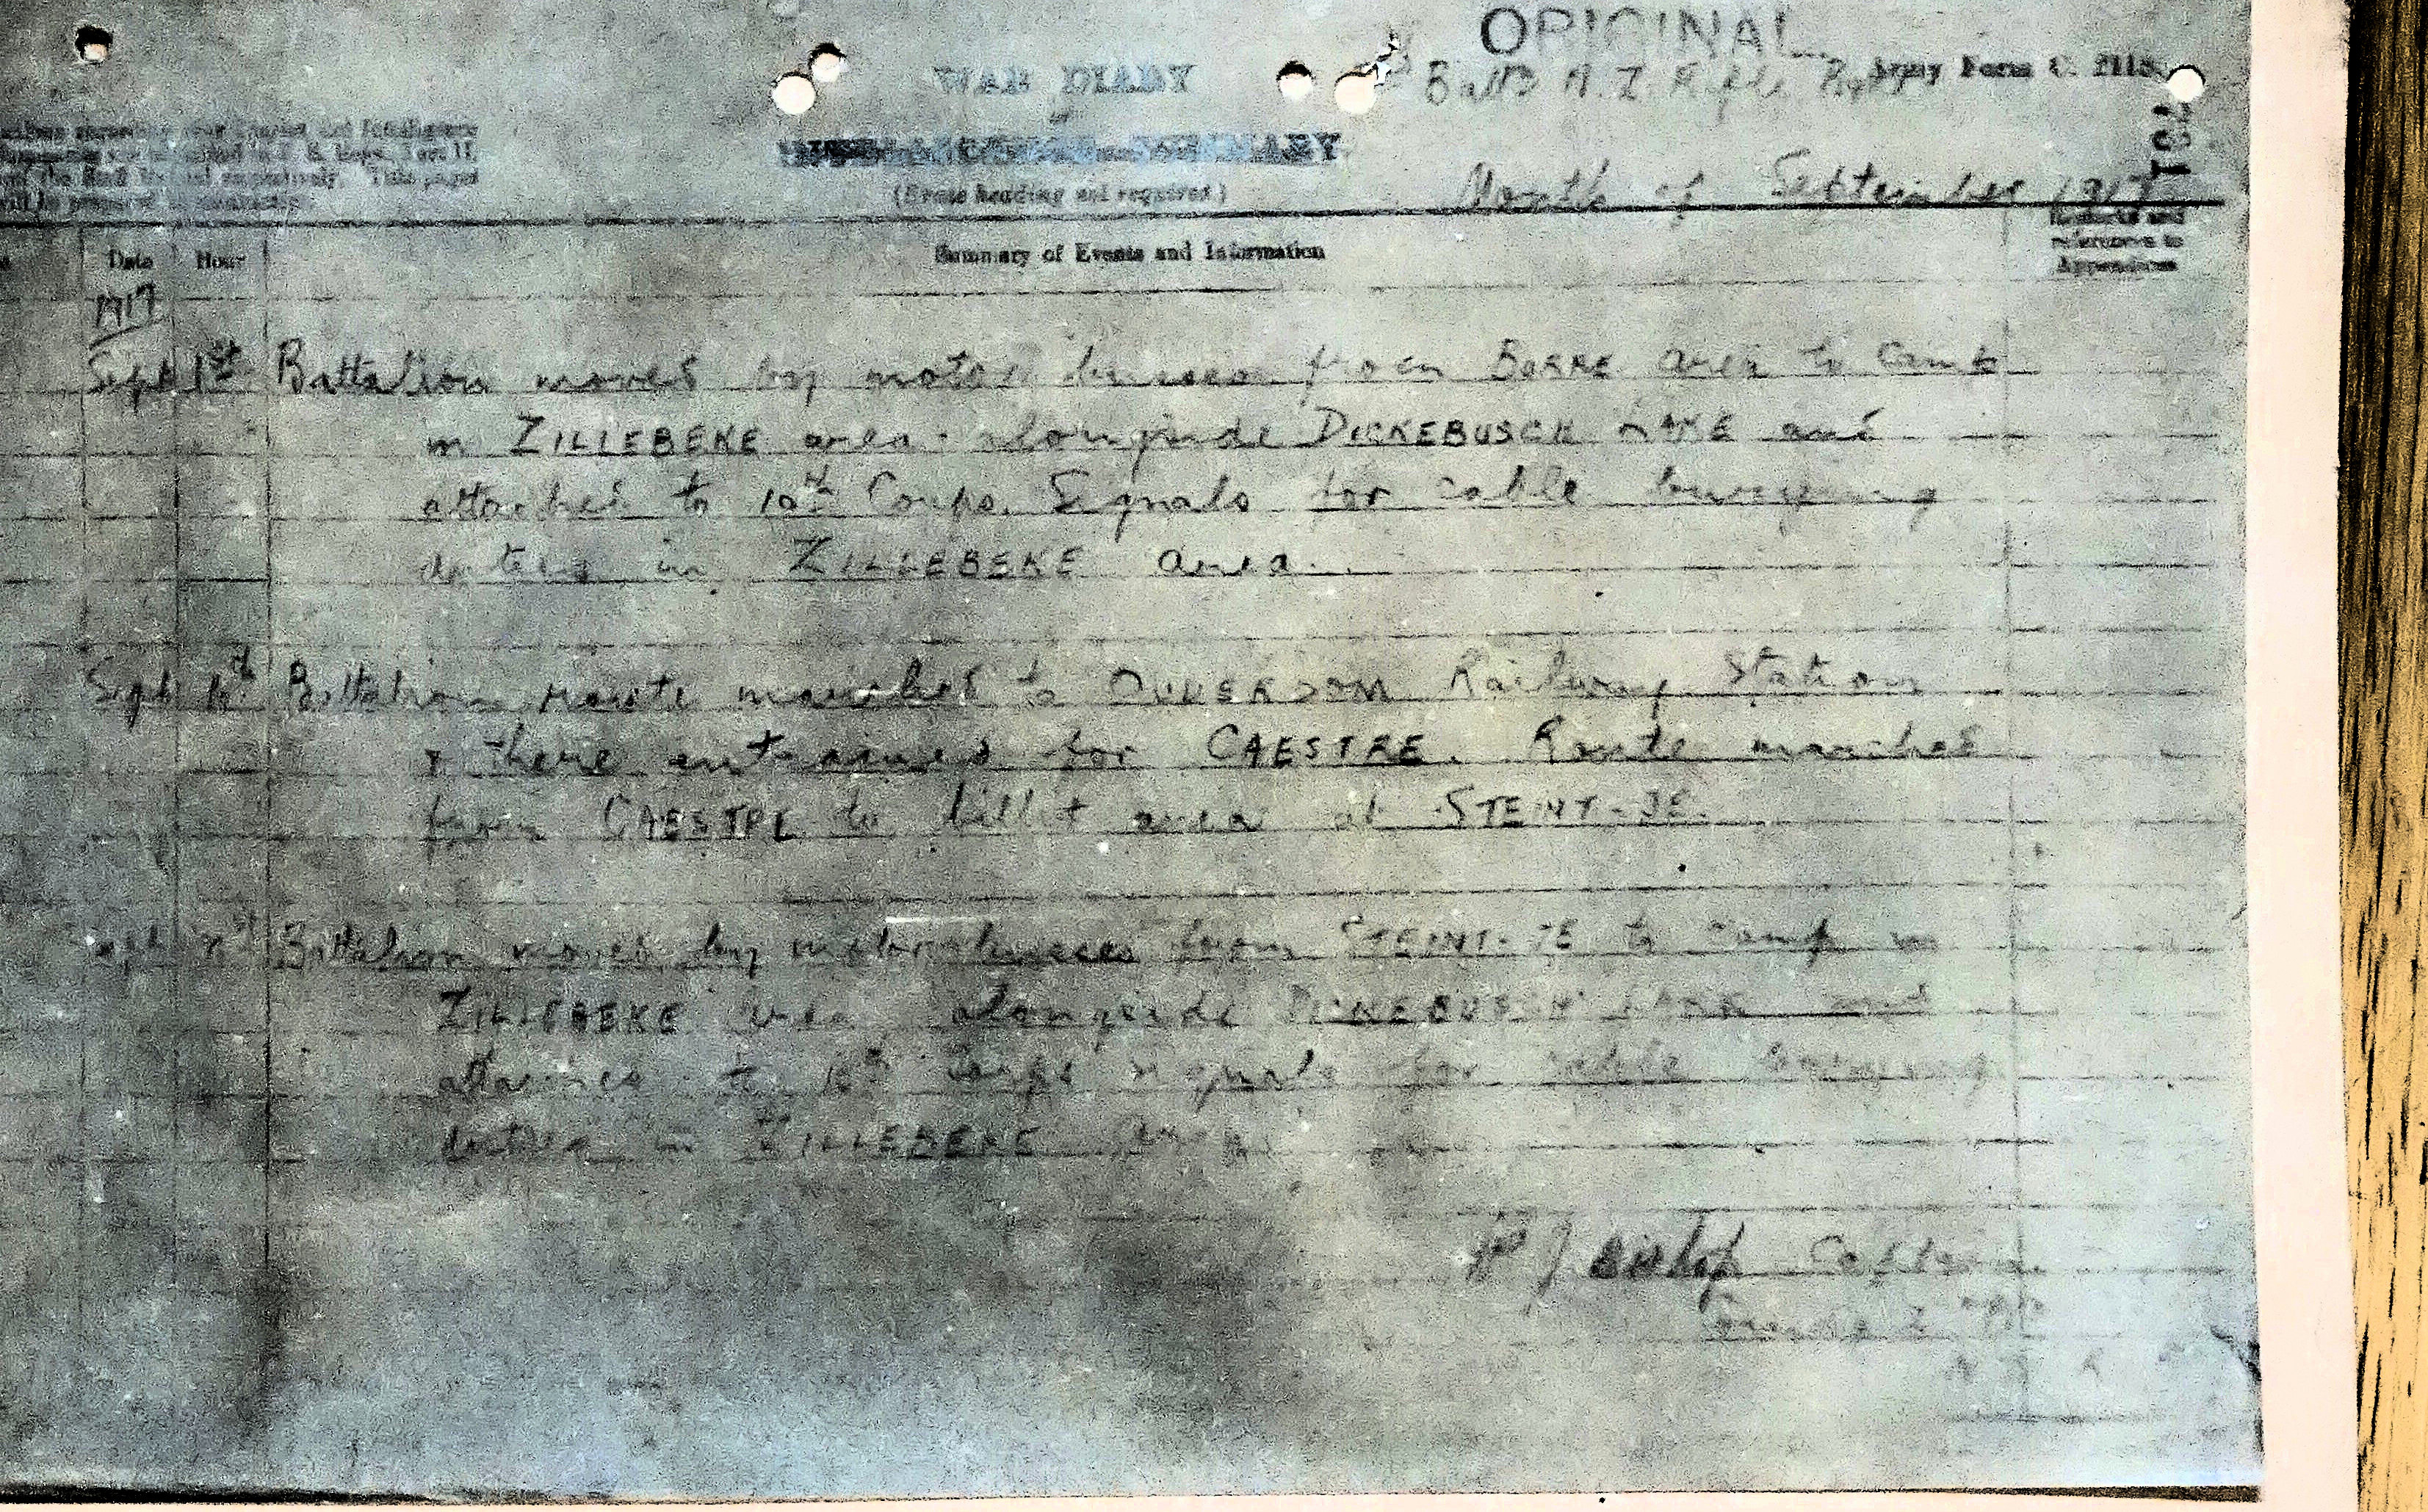 ORIGINAL
WAR DIARY
Battn N. Z. Rifle Army Form C. 2118
or
INTELLIGENCE SUMMARY
(Erase heading not required.)
Month of September 1917
Summary of Events and Information
Date Hour
references to
Appendices
1917
Sept 1st Battalion moved by motor busses from BORRE area to Camp
in ZILLEBEKE area alongside DICKEBUSCH LAKE and
attached to 10th Corps Signals for cable burying
duties in ZILLEBEKE area.
Sept Battalion route marched to OUDERDOM Railway Station
& there entrained for CAESTRE. Route marched
from CAESTRE to billet area at STEINT-JE.
Battalion moved by motor busses from STEINT-JE to camp in
ZILLEBEKE area alongside DICKEBUSCH LAKE and
attached to 10th Corps Signals for cable burying
duties in ZILLEBEKE area
Bishop Captain